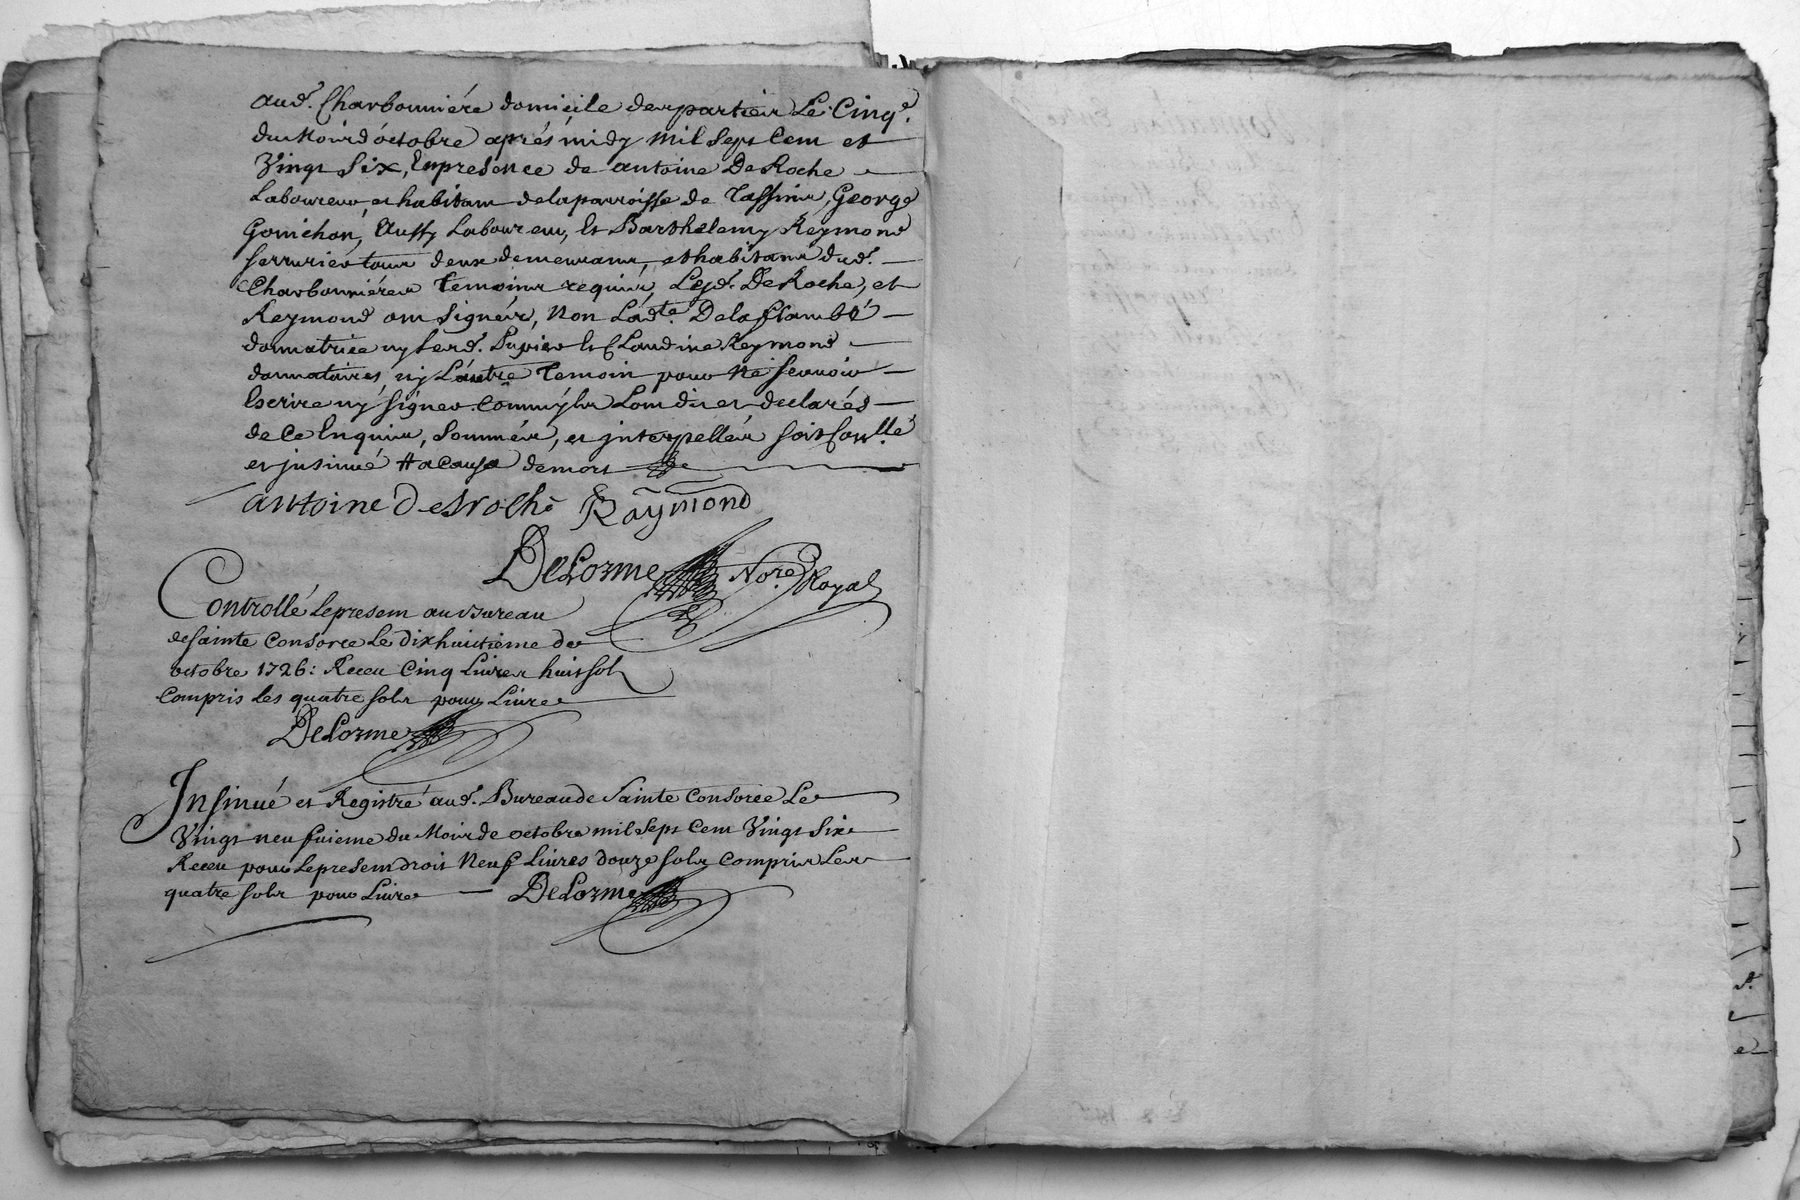 aud. Charbonniére domicile des parties Le Cinqe.
du Mois d'octobre aprés midy mil sept Cent et
Vingt Six, En presence de antoine De Roche
Laboureur, et habitant de la parroisse de Tassins, George
Gonichon, Aussy Laboureur, Et Barthelemy Reymond
serrurier tous deux demeurants, et habitants dud.
Charbonniéres Temoins requis, Lesd. De Roche, et
Reymond ont signés, Non Ladte. Dela flambé
donnatrice ny led. Et Claudine Reymond
donnataires ny L'autre Temoin pour Ne sçavoir
Escrire ny signer Comm'ils L'ont dit et declarés
de Ce Enquis, Sommés, et jnterpellés soit Conllé
et jnsinué # a Cause de mort
antoine Desroche Raymond
DeLorme Nore Royal
Controllé le present au Bureau
de sainte Consorce Le dixhuitieme de
octobre 1726: Receu Cinq Livres huit sols
Compris les quatre sols pour Livre
DeLorme
Insinué et Registré aud. Bureau de Sainte Consorce Le
Vingt neufuieme du Mois de octobre mil Sept Cent Vingt Six
Receu pour Le present droit Neuf Livres douze sols Compris Les
quatre sols pour Livre DeLorme